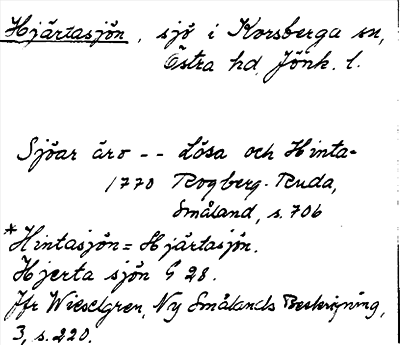 Hjärtasjön, sjö i Korsberga sn,
Östra hd, Jönk. l.
Sjöar äro -- Lösa och Hinta-
1770 Rogberg-Ruda,
Småland, s. 706
*Hintasjön = Hjärtasjön.
Hjerta sjön G 28.
Jfr Wieselgren, Ny Smålands Beskrifning,
3, s. 220.